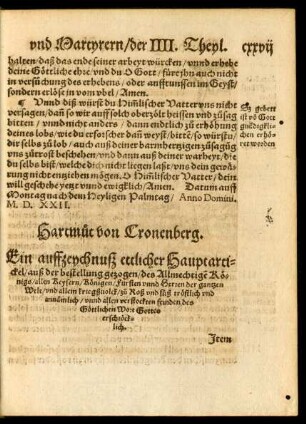 vnd Martyrern/der IIII. Theyl. cxxvij
halten/ daß das ende seiner arbeyt würcken/ vnnd erhebe
deine Göttliche ehre/ vnd du O Gott/ füre jhn auch nicht
in versüchung des erhebens/ oder auffrunssen im Geyst/
sondern erlöse in vom vbel/ Amen.
¶ Vnnd diß würst du Himlischer Vatter vns nicht
versagen/ daß so wir auff solch
bitten/ vnnd nicht anders/ dann endtlich zu erhöhung
deines lobs/ wie du erforscher dañ weyst/ solte/ so würstu
dir selbs zu lob/ auch auß deiner barmhertzigen zusagũg
vns zu trost beschehen/ vnd dann auß deiner warheyt/ die
du selbs bist/ die dich nicht liegen laßt/ vns dein
nung nicht entziehen mögen. O Himlischer Vatter/ dein
will geschehe yetzt vnnd ewigklich/ Amen. Datum auff
Montag nach dem Heyligen Palmtag/ Anno Domini.
M. D. XXII.
Zu gebett
ist võ Gott
gnedigklich
en erhö
ret worden
Hartmüt von Cronenberg.
Ein auffzeychnuß etlicher Hauptarti-
ckel/ auß der bestellung gezogen/ des Allmechtigẽ Kö-
nigs/ aller Keysern/ Königen/ Fürsten vnnd Herren der gantzen
Welt/ vnd allem kriegßuolck/ zu Roß vnd füß tröstlich vnd
annämlich/ vnnd allen verstockten feunden des
Göttlichen Wort Gottes
erschröck-
lich.
Item